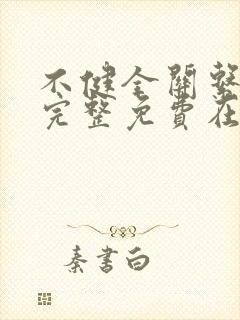 不健全關繫
完整免費在
秦書白